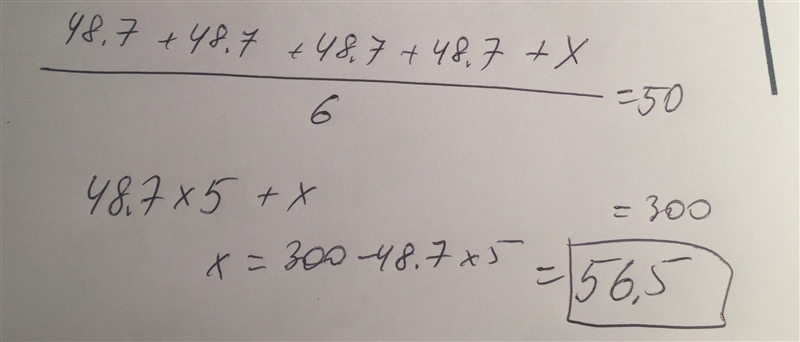 48.7 + 48.7 + 48.7 + 48.7 + x
6
= 50
48.7 x 5 + x = 300
x = 300 - 48.7 x 5 = 56.5